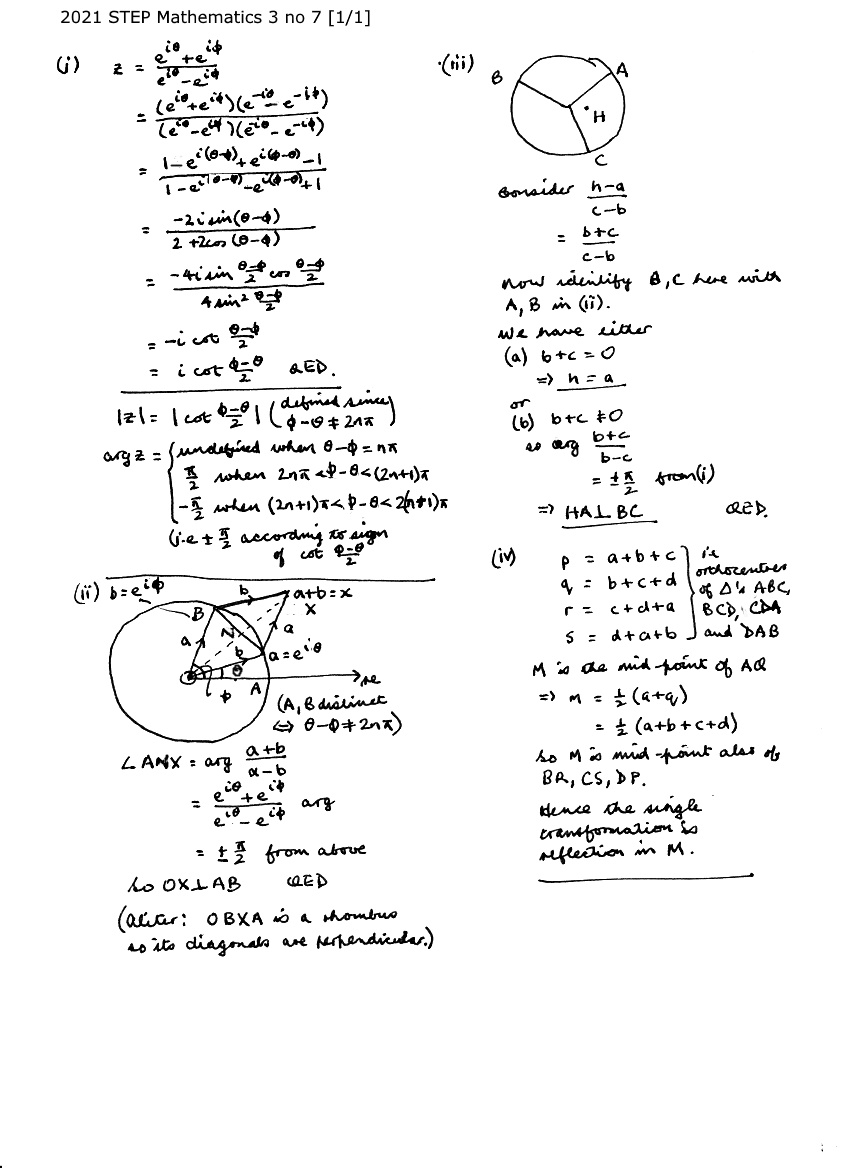 2021 STEP Mathematics 3 no 7 [1/1]
(i) z = (e^{iθ} + e^{iϕ}) / (e^{iθ} - e^{iϕ})
= (e^{iθ} + e^{iϕ})(e^{-iθ} - e^{-iϕ}) / (e^{iθ} - e^{iϕ})(e^{-iθ} - e^{-iϕ})
= (1 - e^{i(θ-ϕ)} + e^{i(ϕ-θ)} - 1) / (1 - e^{i(θ-ϕ)} - e^{i(ϕ-θ)} + 1)
= -2i sin(θ-ϕ) / (2 + 2cos(θ-ϕ))
= -4i sin (θ-ϕ)/2 cos (θ-ϕ)/2 / 4 sin² (θ-ϕ)/2
= -i cot (θ-ϕ)/2
= i cot (ϕ-θ)/2 QED.
|z| = |cot (ϕ-θ)/2| (defined since ϕ-θ ≠ 2nπ)
arg z = { undefined when θ-ϕ = nπ
π/2 when 2nπ < ϕ-θ < (2n+1)π
-π/2 when (2n+1)π < ϕ-θ < 2(n+1)π
(i.e ± π/2 according to sign
of cot (ϕ-θ)/2
(ii) b = e^{iϕ}
b
a+b = x
X
B
a
N
a
b
a = e^{iθ}
θ
re
ϕ
A
(A, B distinct
⇔ θ-ϕ ≠ 2nπ)
∠ANX = arg (a+b)/(a-b)
= (e^{iθ} + e^{iϕ}) / (e^{iθ} - e^{iϕ}) arg
= ± π/2 from above
So OX⊥AB QED
(Aliter: OBXA is a rhombus
so its diagonals are perpendicular.)
(iii)
B
A
H
C
Consider (h-a)/(c-b)
= (b+c)/(c-b)
Now identify B, C here with
A, B in (ii).
We have either
(a) b+c = 0
=> h = a
or
(b) b+c ≠ 0
so arg (b+c)/(b-c)
= ± π/2 from (i)
=> HA⊥BC QED.
(iv) p = a+b+c
q = b+c+d
r = c+d+a
s = d+a+b
i.e
orthocentres
of Δ's ABC,
BCD, CDA
and DAB
M is the mid-point of AQ
=> m = ½(a+q)
= ½(a+b+c+d)
So M is mid-point also of
BR, CS, DP.
Hence the single
transformation is
reflection in M.